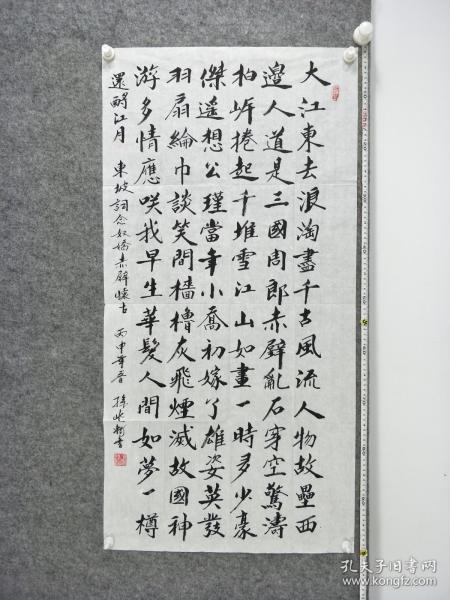 大江東去浪淘盡千古風流人物故壘西
邊人道是三國周郎赤壁亂石穿空驚濤
拍岸捲起千堆雪江山如畫一時多少豪
傑遙想公瑾當年小喬初嫁了雄姿英發
羽扇綸巾談笑間檣櫓灰飛煙滅故國神
游多情應咲我早生華髮人間如夢一樽
還酹江月 東坡詞念奴嬌赤壁懷古 丙申年 孫 書
孔夫子旧书网
www.kongfz.com